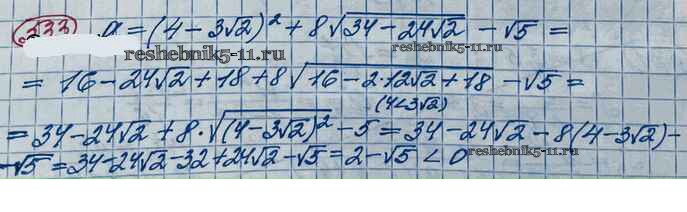 333 a = (4 - 3√2)² + 8√(34 - 24√2) - √5 =
reshebnik5-11.ru
= 16 - 24√2 + 18 + 8√(16 - 2·12√2 + 18) - √5 =
(4<3√2)
= 34 - 24√2 + 8·√((4 - 3√2)²) - 5 = 34 - 24√2 - 8(4 - 3√2) -
- √5 = 34 - 24√2 - 32 + 24√2 - √5 = 2 - √5 < 0
reshebnik5-11.ru